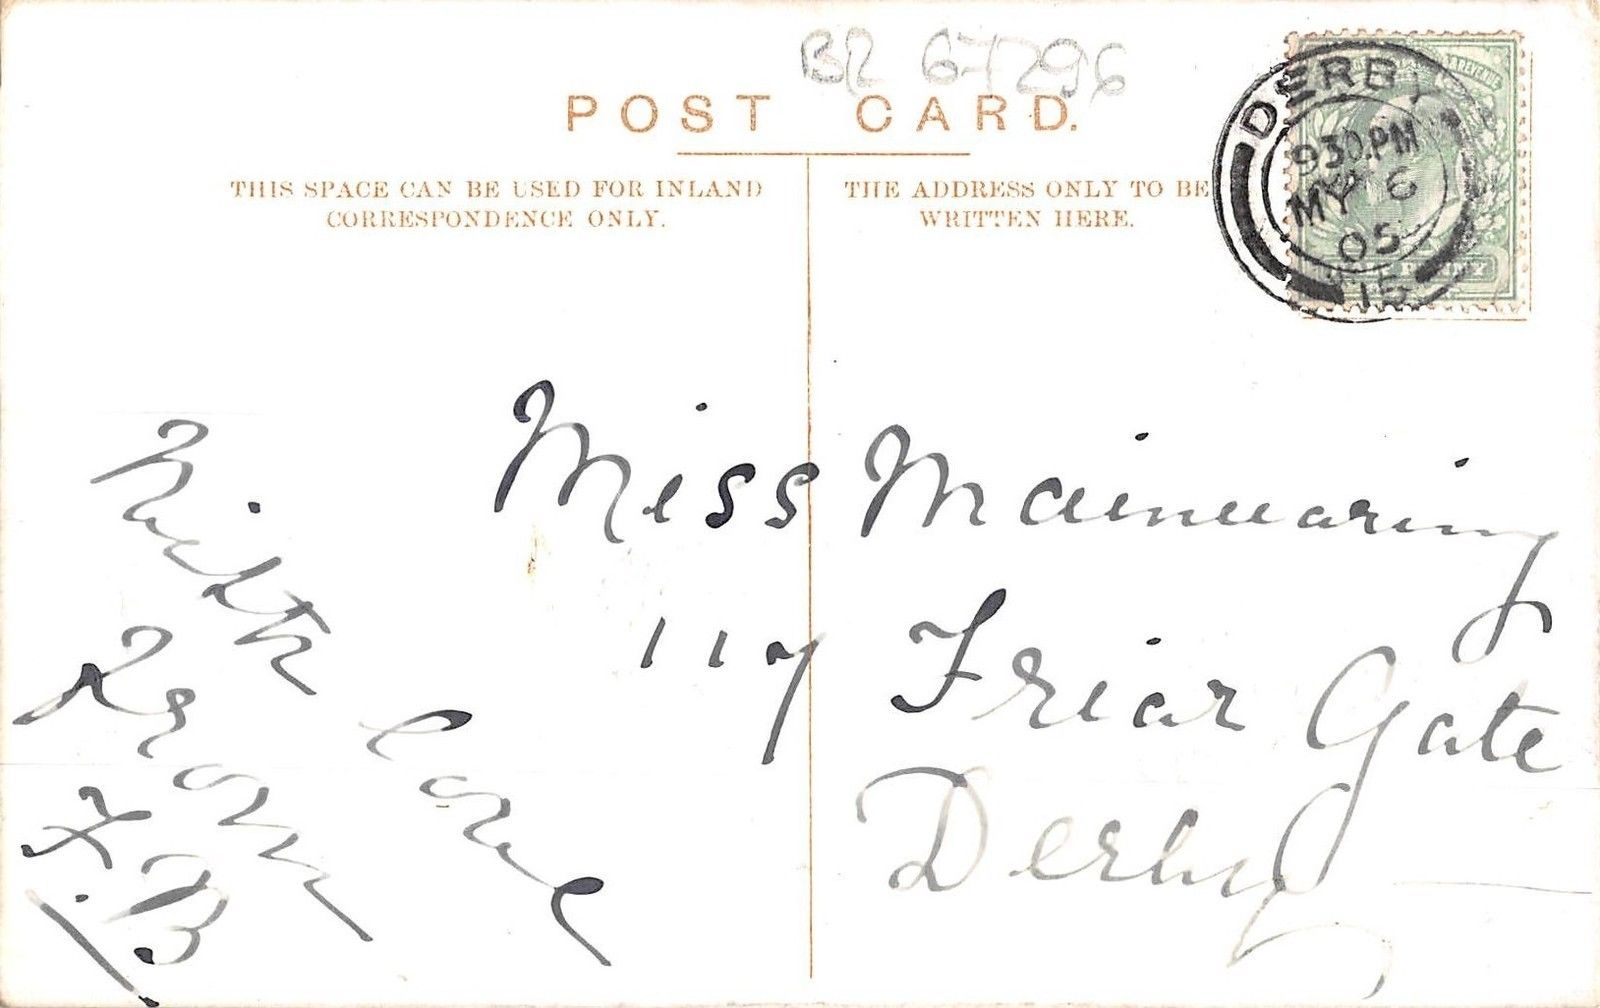 BR 67296
POST CARD.
THIS SPACE CAN BE USED FOR INLAND
CORRESPONDENCE ONLY.
THE ADDRESS ONLY TO BE
WRITTEN HERE.
DERBY
9 30.PM
MY 6
05
15
REVENUE
HALF PENNY
Miss Mainwaring
117 Friar Gate
Derby
With love
from
F.B.